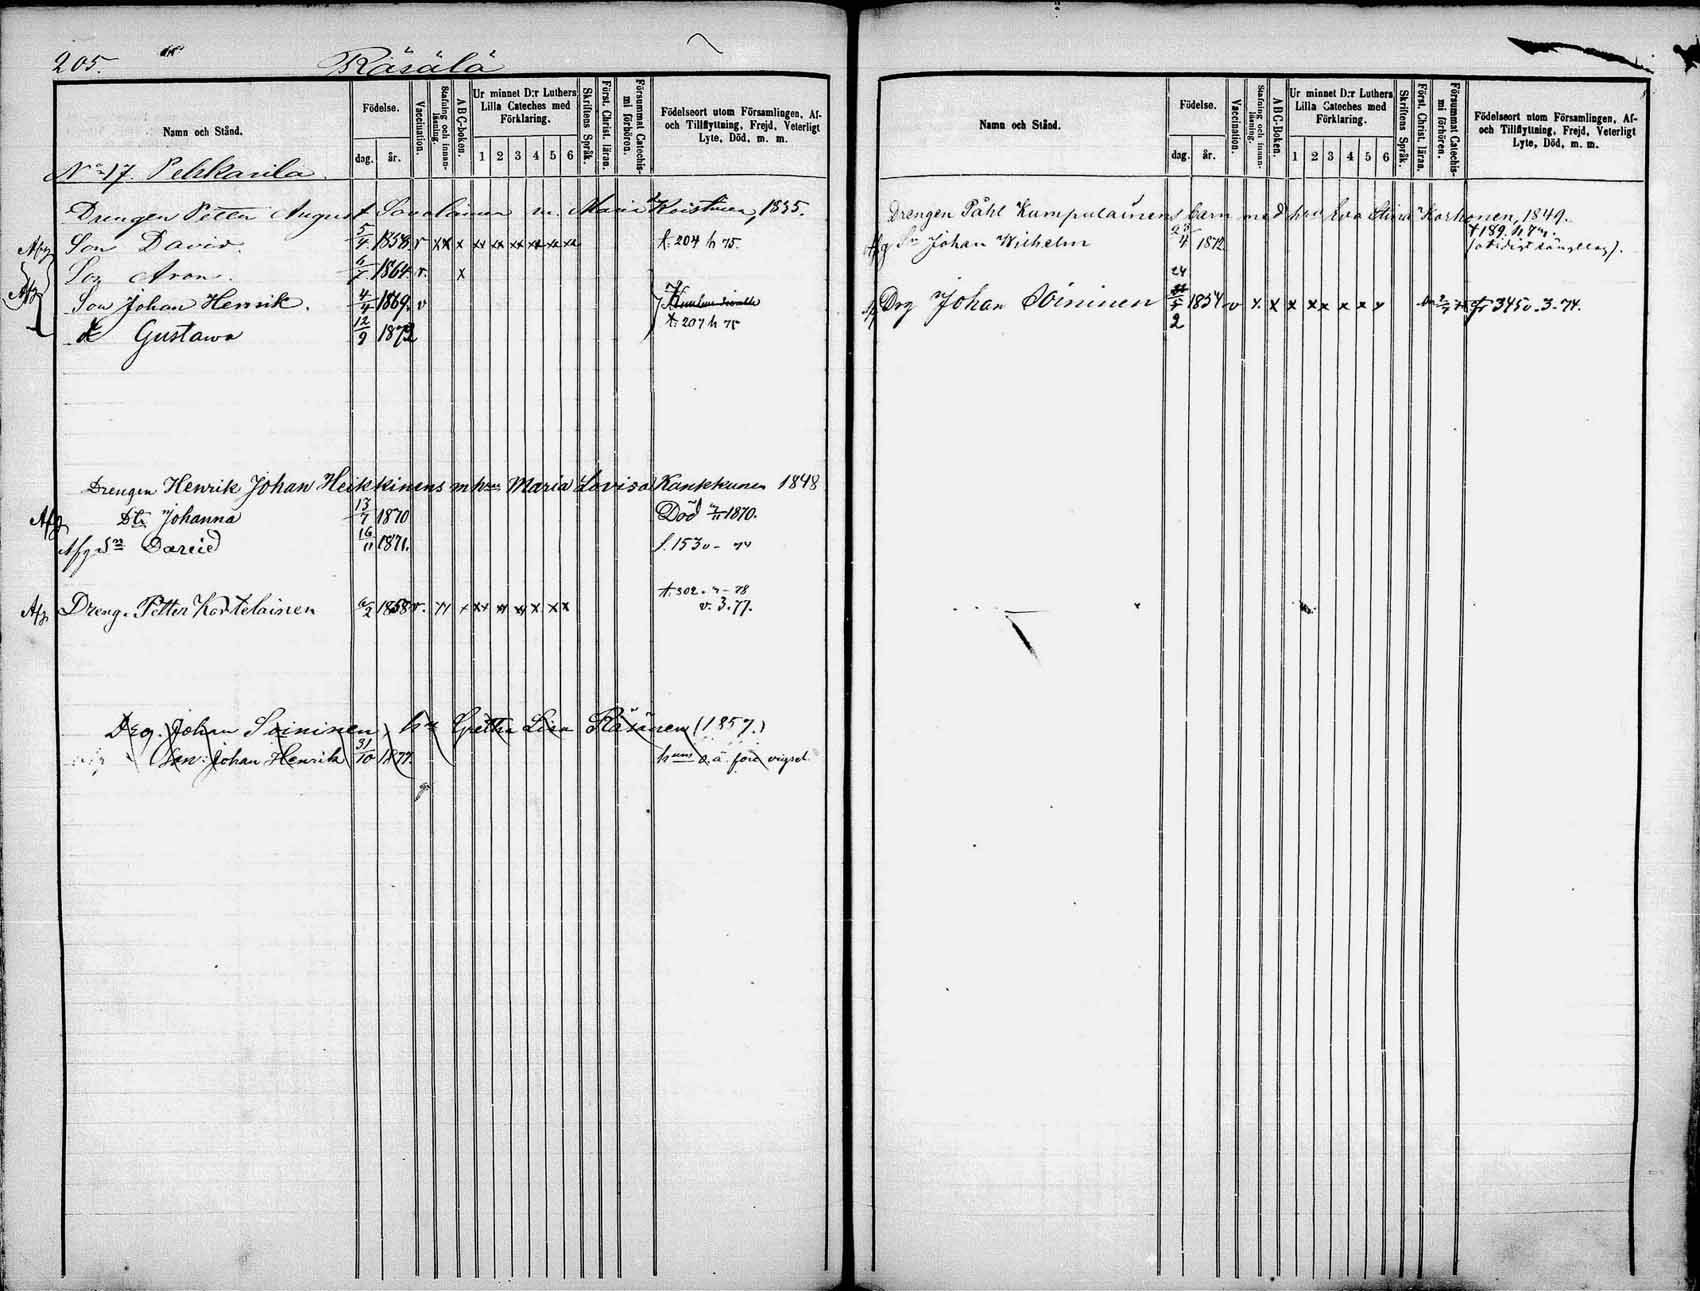 205. Räsälä
Namn och Stånd. Födelse. dag. år. Vaccination. Stafning och innanläsning. A B C-boken. Ur minnet D:r Luthers Lilla Cateches med Förklaring. 1 2 3 4 5 6 Skriftens Språk. Först. Christ. läran. Försummat Catechismi förhören. Födelseort utom Församlingen, Af- och Tillflyttning, Frejd, Veterligt Lyte, Död, m. m.
No 17. Pekkarila
Drengen Petter August Savolainen m. Maria Kristina, 1835.
Afg Son David 5/4 1858. v xx x xx xx xx xx xx xx t. 204 h 75.
Son Aron. 6/7 1864. v. x
Afg Son Johan Henrik. 4/4 1869. v
Gustava 12/9 1872 t. 207 h 75
Drengen Henrik Johan Heikkinens m hru Maria Lovisa Kankkunen 1848
Afg Dtr Johanna 13/7 1870 Död 1870.
Afg Sn David 16/11 1871. f. 153 v - 74
Afg Dreng. Petter Kortelainen 6/2 1858 v. xx x xx xx xx x x x t. 302. v - 78
v. 3. 77.
Drg. Johan Soininen, h Gretha Lisa Räsänen (1857.)
Son: Johan Henrik 31/10 1877. hans o. ä. före vigsel
Namn och Stånd. Födelse. dag. år. Vaccination. Stafning och innanläsning. A B C-Boken. Ur minnet D:r Luthers Lilla Cateches med Förklaring. 1 2 3 4 5 6 Skriftens Språk. Först. Christ. läran. Försummat Catechismi förhören. Födelseort utom Församlingen, Af- och Tillflyttning, Frejd, Veterligt Lyte, Död, m. m.
Drengen Påhl Kumpulainens barn med hru Eva Stina Korhonen, 1849.
Afg Sn Johan Wilhelm 23/4 1872 t 189. h 7
Drg Johan Soininen 24 1854 v x x x xx x x x 345 v. 3. 74.
2